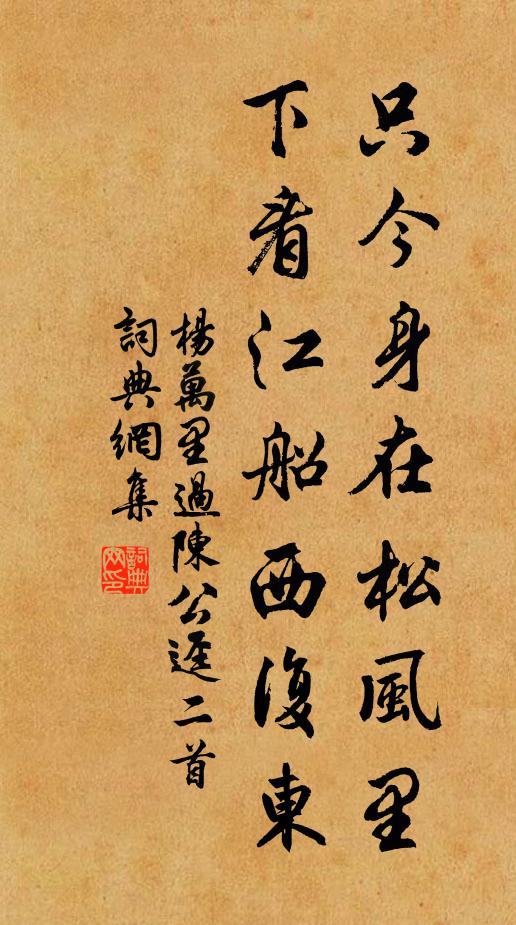 只今身在松風里
下看江船西復東
楊萬里過陳公逕二首
詞典網集
詞典網印